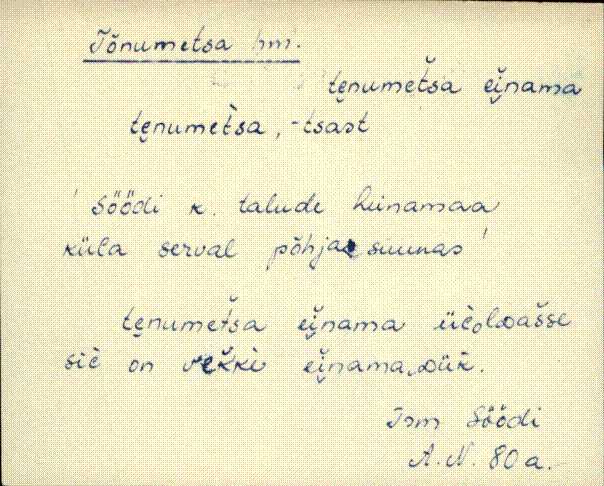 Tõnumetsa hm.
te̮numet̆sa ei̯nama
te̮numet̀sa, -tsast
'Söödi k. talude heinamaa
küla serval põhja suunas'
te̮numet̆sa ei̯nama
siè on ei̯nama
Jsm Söödi
A.N. 80 a.